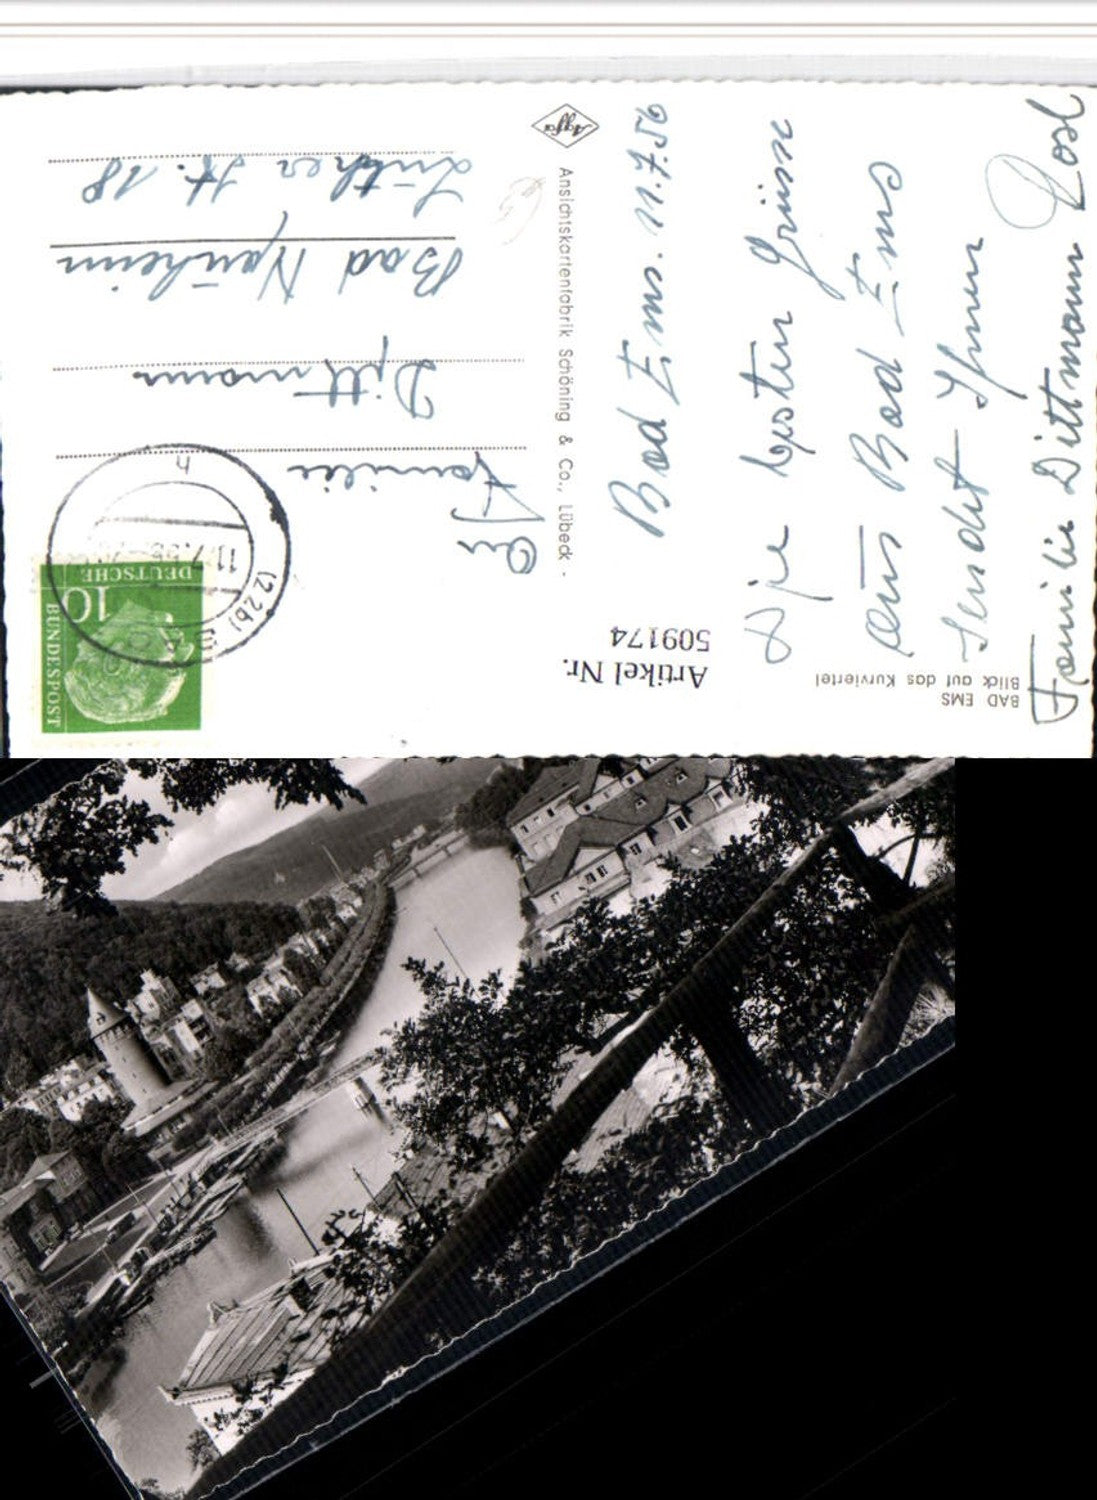 BAD EMS
Blick auf das Kurviertel
Artikel Nr.
509174
Bad Ems. 11.7.56
Die besten Grüsse
aus Bad Ems
sendet Ihnen
Familie Dittmann
Agfa
Ansichtskartenfabrik Schöning & Co., Lübeck
DEUTSCHE
BUNDESPOST
10
(22b)
11.7.56
h
An
Familie
Dittmann
Bad Nauheim
Luther St. 18